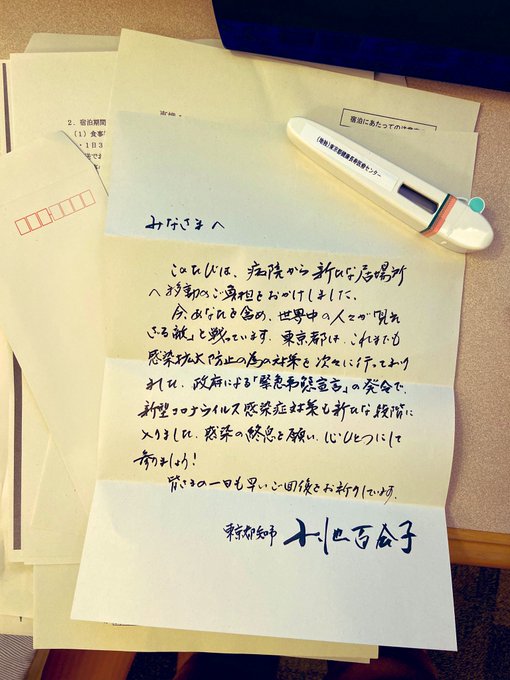 2. 宿泊期間
(1) 食事
・1日3
宿泊にあたっての
(地独)東京都健康長寿医療センター
みなさまへ
このたびは、病院から新たな居場所
へ移動のご負担をおかけしました。
今、あなたを含め、世界中の人々が「見え
ざる敵」と戦っています。東京都は、これまでも
感染拡大防止の為の対策を次々に行っており
ました。政府による「緊急事態宣言」の発令で、
新型コロナウイルス感染症対策も新たな段階に
入りました。感染の終息を願い、心ひとつにして
参りましょう!
皆さまの一日も早いご回復をお祈りしています。
東京都知事 小池百合子